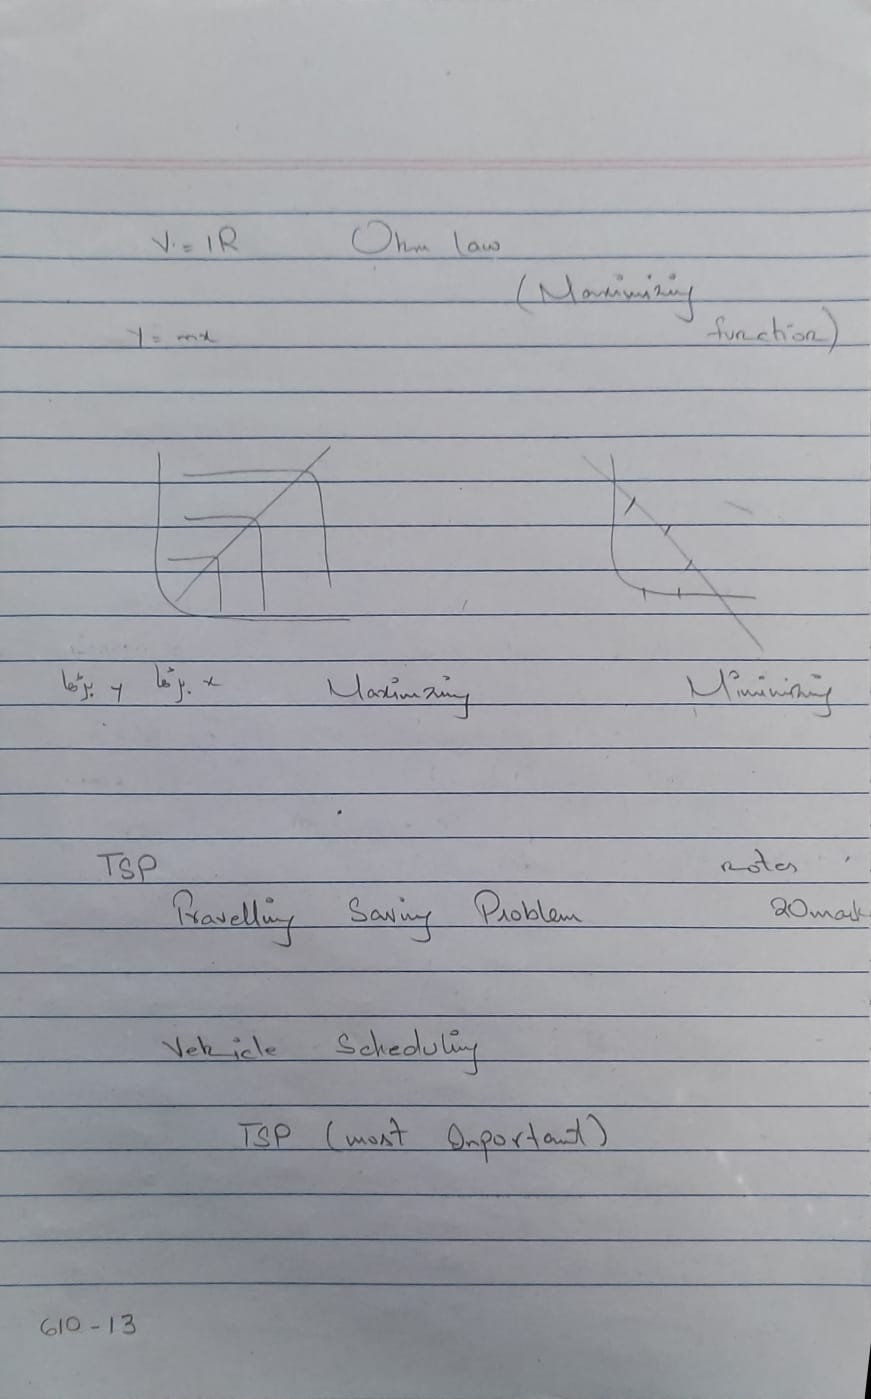 V = IR Ohm law
(Maximizing
function)
y = mx
y x Maximizing Miminizing
TSP notes
Travelling Saving Problem 20 mark
Vehicle Scheduling
TSP (most Important)
610-13